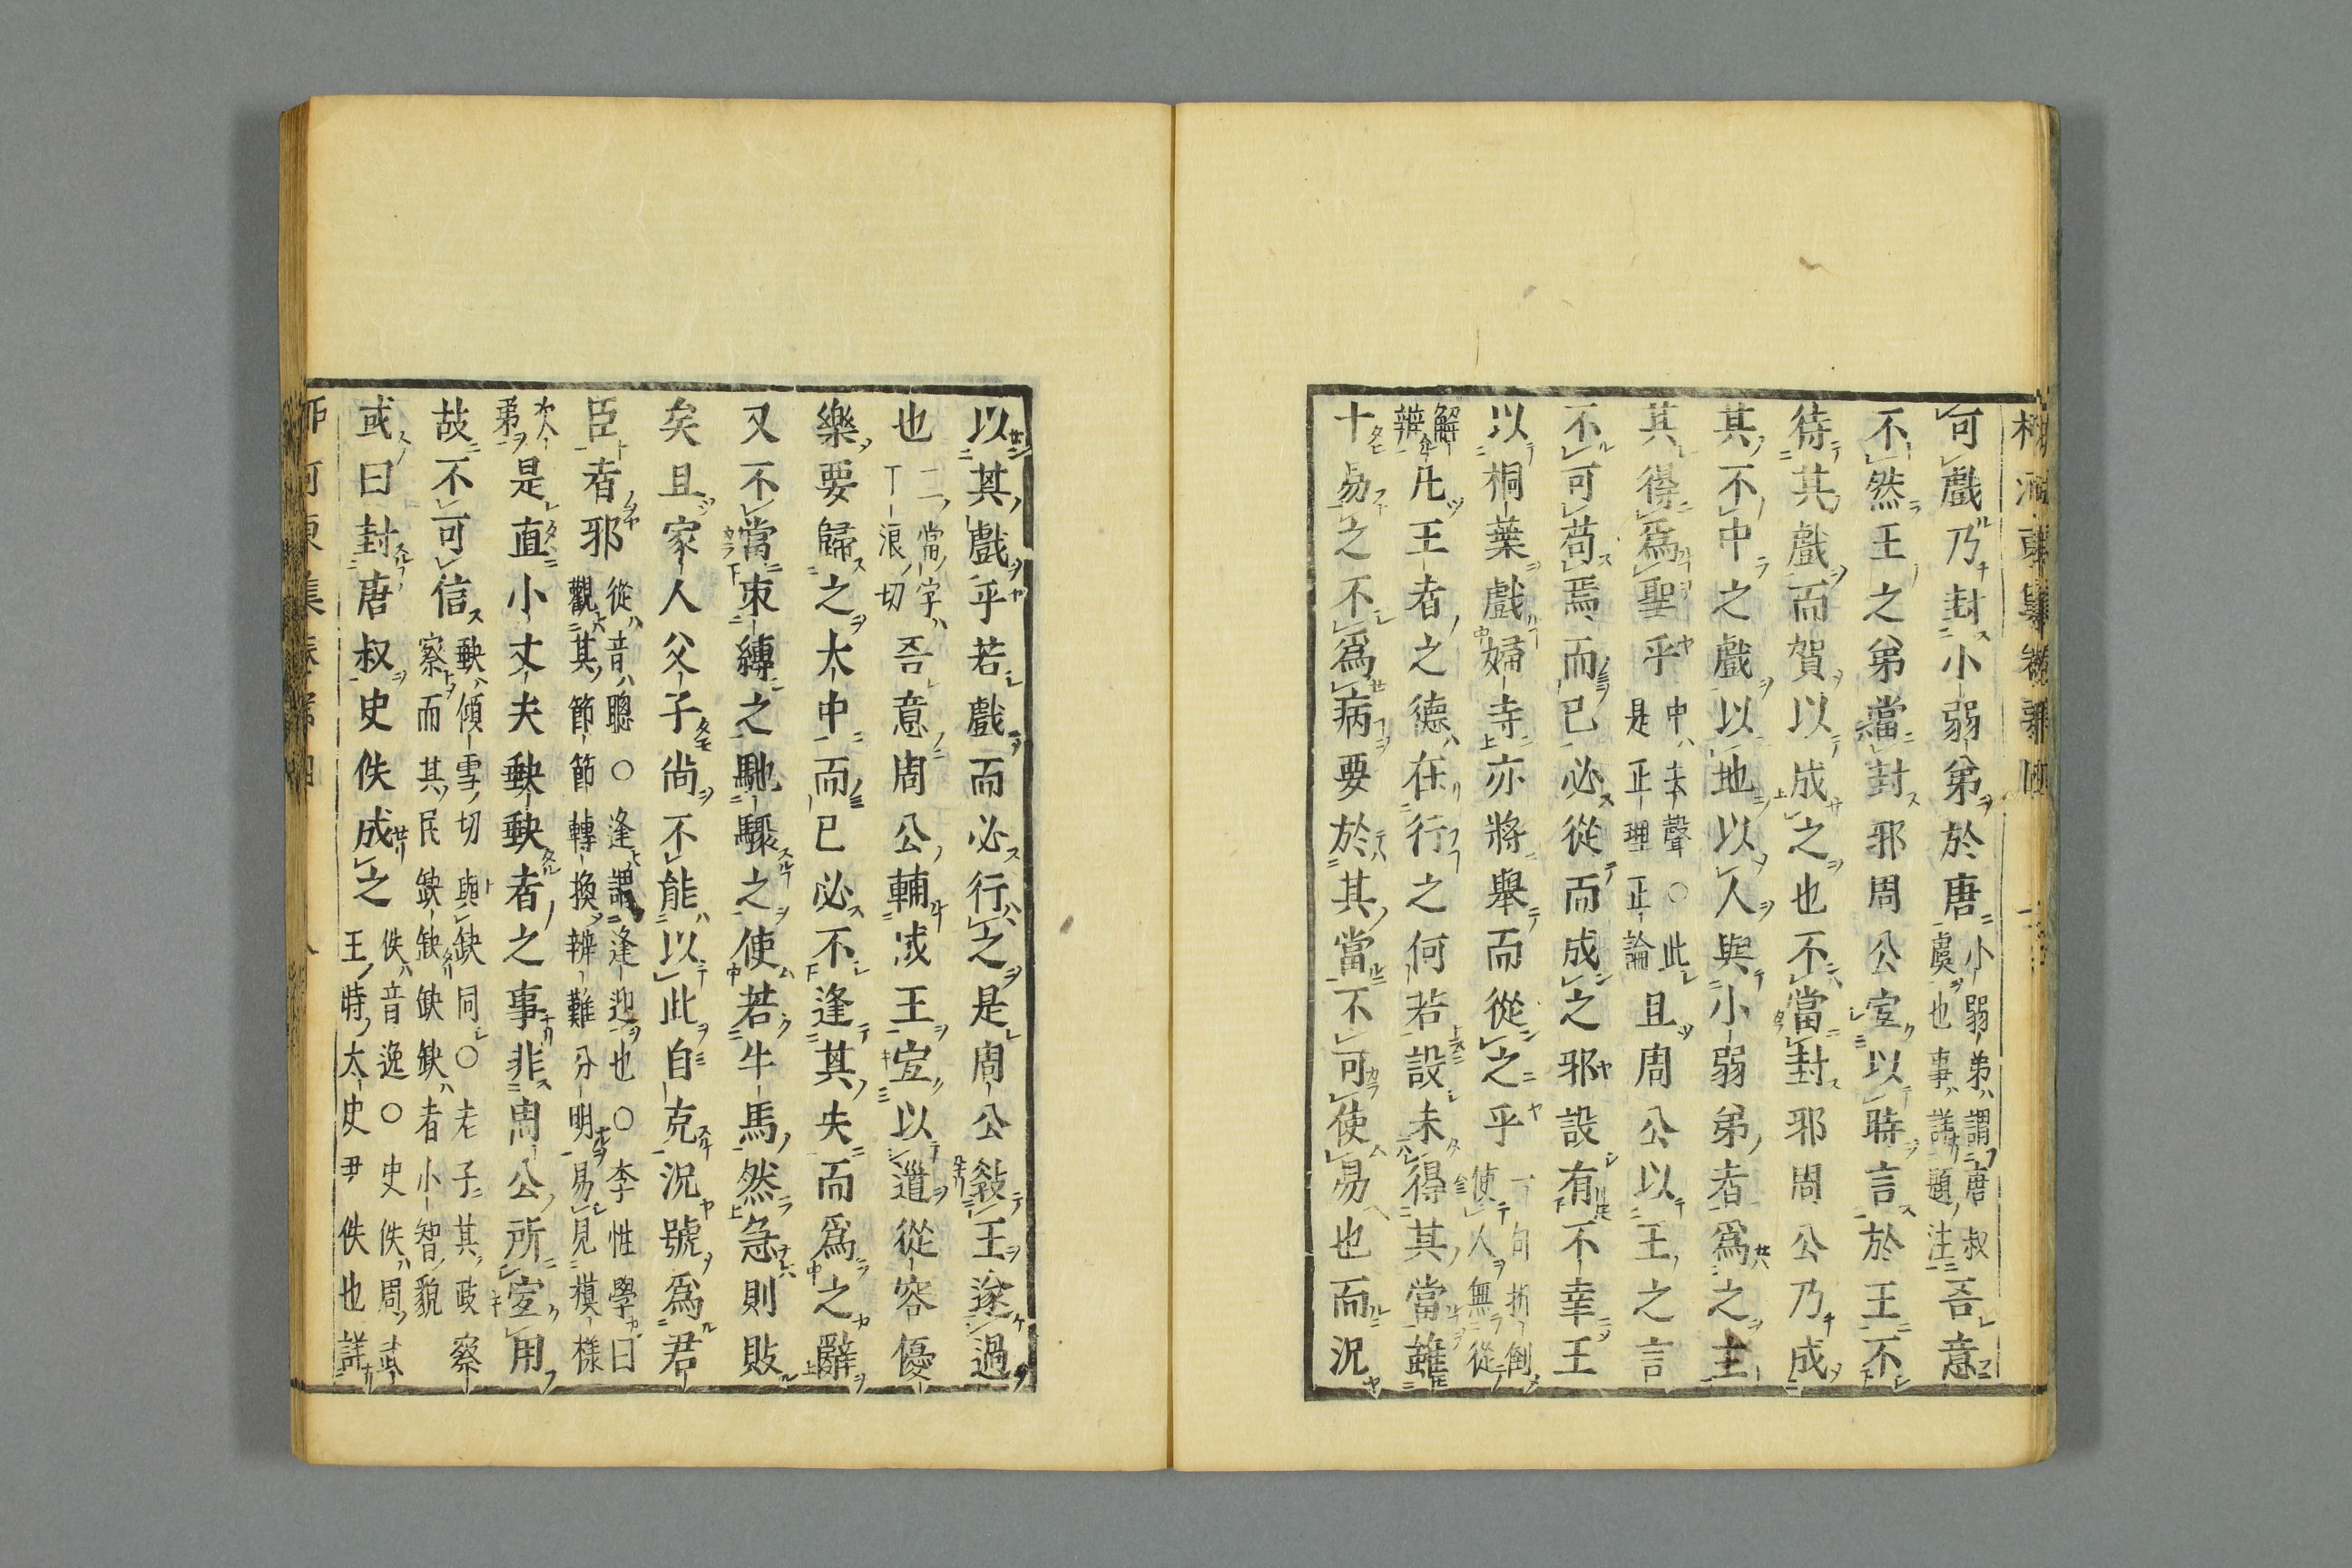 可戲乃封小弱弟於唐小弱弟謂唐叔虞也事詳題注吾意
不然王之弟當封邪周公宜以時言於王不
待其戲而賀以成之也不當封邪周公乃成
其不中之戲以地以人與小弱弟者爲之主
其得爲聖乎中去聲○此是正理正論且周公以王之言
不可苟焉而已必從而成之邪設有不幸王
以桐葉戲婦寺亦將舉而從之乎一句折倒使人無從
解辨凡王者之德在行之何若設未得其當雖
十易之不爲病要於其當不可使易也而況
以其戲乎若戲而必行之是周公敎王遂過
也二當字丁浪切吾意周公輔成王宜以道從容優
樂要歸之大中而已必不逢其失而爲之辭
又不當束縛之馳驟之使若牛馬然急則敗
矣且家人父子尚不能以此自克況號爲君
臣者邪從音聰○逢謂逢迎也○李性學曰觀其節節轉換辨難分明易見模樣
次弟是直小丈夫缺缺者之事非周公所宜用
故不可信缺傾雪切與缺同○老子其政察察而其民缺缺缺缺者小智貌
或曰封唐叔史佚成之佚音逸○史佚周武王時太史尹佚也詳